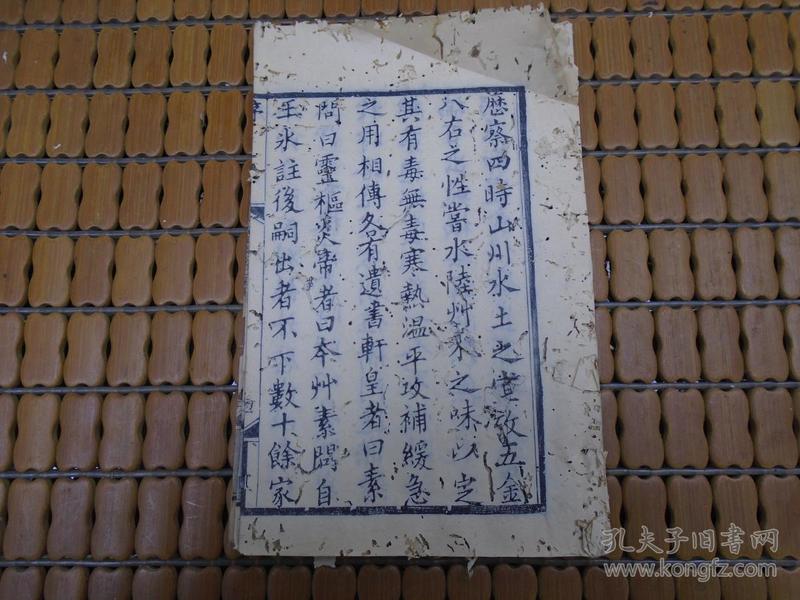 歷察四時山川水土之宜攷五金
八石之性嘗水陸艸木之味以定
其有毒無毒寒熱温平攻補緩急
之用相傳各有遺書軒皇者曰素
問曰靈樞炎帝者曰本艸素問自
王氷註後嗣出者不下數十餘家
序
孔夫子旧书网
www.kongfz.com